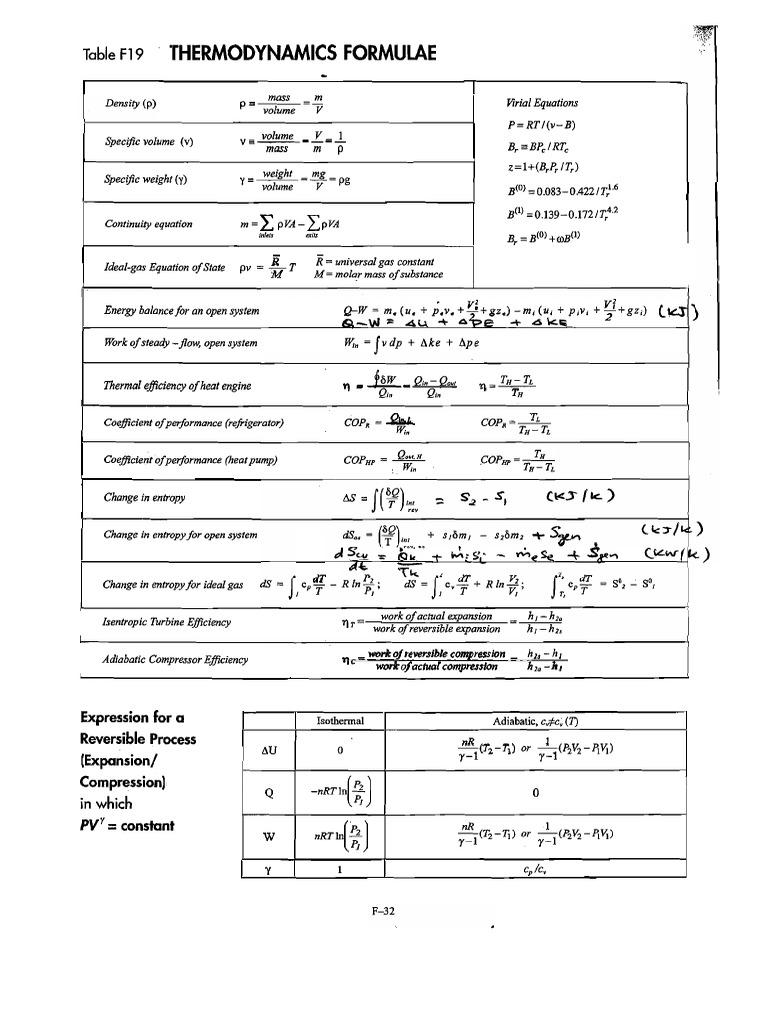 Table F19 THERMODYNAMICS FORMULAE
Density (ρ) ρ ≡ mass/volume = m/V
Specific volume (v) v ≡ volume/mass = V/m = 1/ρ
Specific weight (γ) γ = weight/volume = mg/V = ρg
Continuity equation m = ∑ ρVA – ∑ ρVA
inlets exits
Ideal-gas Equation of State ρv = R̅/M T R̅ = universal gas constant
M = molar mass of substance
Virial Equations
P = RT / (v – B)
Br = BPc / RTc
z = 1 + (BrPr / Tr)
B(0) = 0.083 – 0.422 / Tr^1.6
B(1) = 0.139 – 0.172 / Tr^4.2
Br = B(0) + ωB(1)
Energy balance for an open system Q–W = me (ue + peve + V²e/2 + gze) – mi (ui + pivi + V²i/2 + gzi) (kJ)
Q – W = ΔU + ΔPE + ΔKE
Work of steady – flow, open system Win = ∫v dp + Δke + Δpe
Thermal efficiency of heat engine η = ∮δW/Qin = Qin – Qout/Qin η = TH – TL/TH
Coefficient of performance (refrigerator) COPR = Qin,L/Win COPR = TL/TH – TL
Coefficient of performance (heat pump) COPHP = Qout,H/Win COPHP = TH/TH – TL
Change in entropy ΔS = ∫(δQ/T) int rev = S2 - S1 (kJ/k)
Change in entropy for open system dSos = (δQ/T) int rev, os + s1δm1 – s2δm2 + Sgen (kJ/k)
dScv/dt = Q̇k/Tk + ṁiSi – ṁeSe + Ṡgen (kW/k)
Change in entropy for ideal gas dS = ∫₁² cp dT/T – R ln P2/P1 ; dS = ∫₁² cv dT/T + R ln V2/V1 ; ∫ cp dT/T = S°2 – S°1
Isentropic Turbine Efficiency ηT = work of actual expansion/work of reversible expansion = h1 – h2a/h1 – h2s
Adiabatic Compressor Efficiency ηC = work of reversible compression/work of actual compression = h2s – h1/h2a – h1
Expression for a
Reversible Process
(Expansion/
Compression)
in which
PV^γ = constant
Isothermal Adiabatic, cv≠cv (T)
ΔU 0 nR/γ–1 (T2 – T1) or 1/γ–1 (P2V2 – P1V1)
Q –nRT ln(P2/P1) 0
W nRT ln(P2/P1) nR/γ–1 (T2 – T1) or 1/γ–1 (P2V2 – P1V1)
γ 1 cp/cv
F–32